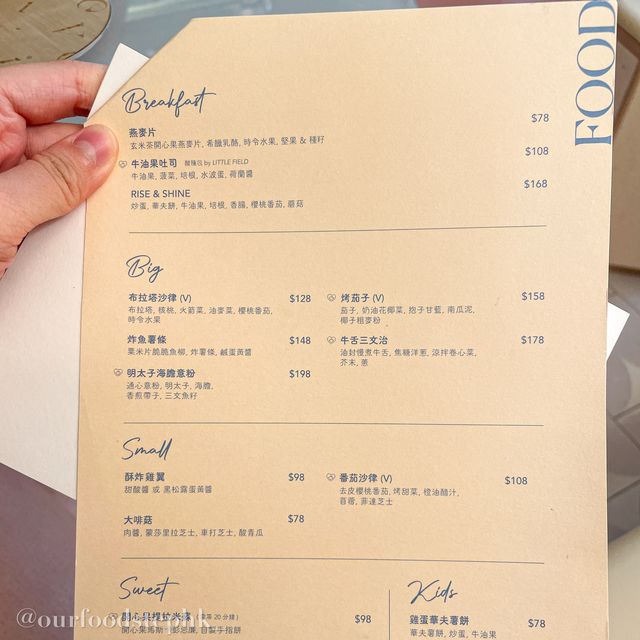 FOOD
Breakfast
燕麥片 $78
玄米茶開心果燕麥片, 希臘乳酪, 時令水果, 堅果 & 種籽
牛油果吐司 酸種包 by LITTLE FIELD $108
牛油果, 菠菜, 培根, 水波蛋, 荷蘭醬
RISE & SHINE $168
炒蛋, 華夫餅, 牛油果, 培根, 香腸, 櫻桃番茄, 蘑菇
Big
布拉塔沙律 (V) $128
布拉塔, 核桃, 火箭菜, 油麥菜, 櫻桃番茄,
時令水果
炸魚薯條 $148
粟米片脆脆魚柳, 炸薯條, 鹹蛋黃醬
明太子海膽意粉 $198
通心意粉, 明太子, 海膽,
香煎帶子, 三文魚籽
烤茄子 (V) $158
茄子, 奶油花椰菜, 孢子甘藍, 南瓜泥,
椰子粗麥粉
牛舌三文治 $178
油封慢煮牛舌, 焦糖洋蔥, 涼拌卷心菜,
芥末, 蔥
Small
酥炸雞翼 $98
甜酸醬 或 黑松露蛋黃醬
大啡菇 $78
肉醬, 蒙莎里拉芝士, 車打芝士, 酸青瓜
番茄沙律 (V) $108
去皮櫻桃番茄, 烤甜菜, 橙油醋汁,
苜蓿, 菲達芝士
Sweet
開心果提拉米蘇 20 分鐘) $98
開心果馬斯 自製手指餅
Kids
雞蛋華夫薯餅 $78
華夫薯餅, 炒蛋, 牛油果